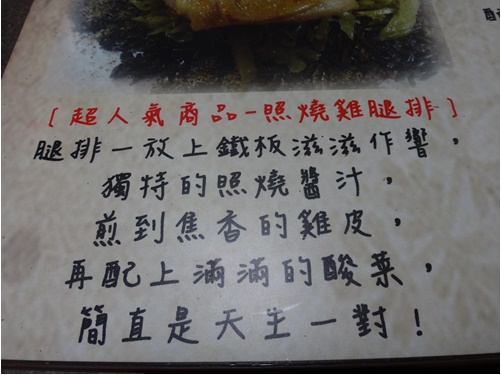 [超人氣商品-照燒雞腿排]
腿排一放上鐵板滋滋作響，
獨特的照燒醬汁，
煎到焦香的雞皮，
再配上滿滿的酸菜，
簡直是天生一對！